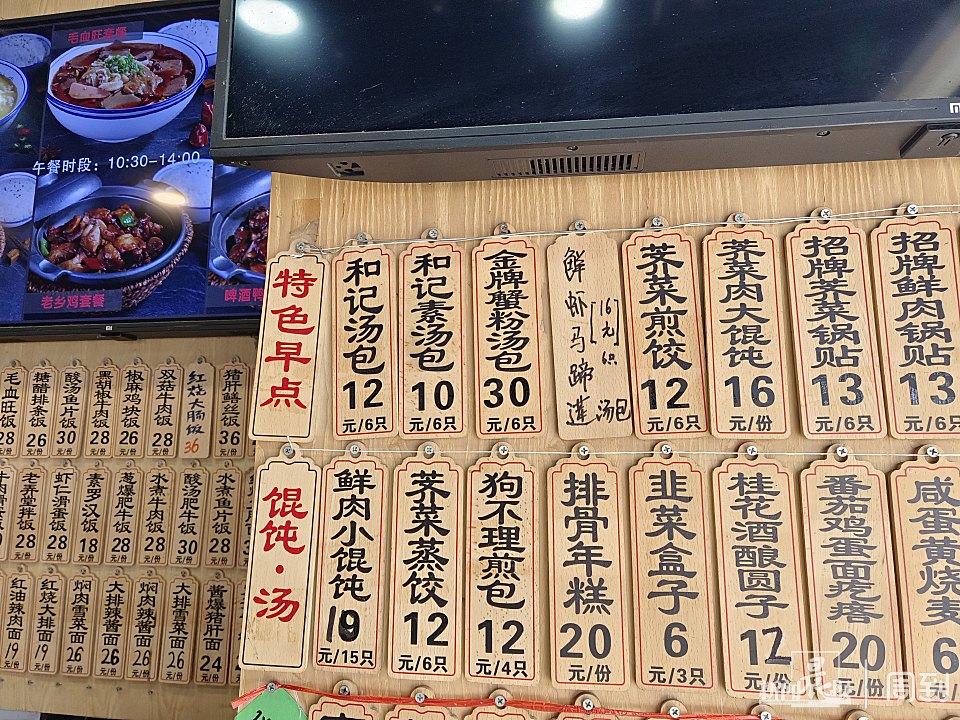 毛血旺套餐
午餐时段：10:30-14:00
老乡鸡套餐
啤酒鸭
特色早点
和记汤包 12 元/6只
和记素汤包 10 元/6只
金牌蟹粉汤包 30 元/6只
鲜虾马蹄莲汤包 [16元/6只]
荠菜煎饺 12 元/6只
荠菜肉大馄饨 16 元/份
招牌荠菜锅贴 13 元/6只
招牌鲜肉锅贴 13 元/6只
馄饨·汤
鲜肉小馄饨 10 元/15只
荠菜蒸饺 12 元/6只
狗不理煎包 12 元/4只
排骨年糕 20 元/份
韭菜盒子 6 元/3只
桂花酒酿圆子 12 元/份
番茄鸡蛋面疙瘩 20 元/份
咸蛋黄烧麦 6
毛血旺饭 28
糖醋排条饭 26 元/份
酸汤鱼片饭 30 元/份
黑胡椒牛肉饭 28 元/份
椒麻鸡块饭 26 元/份
双菇牛肉饭 28 元/份
红烧大肠饭 36
猪肝鳝丝饭 36 元/份
老弄堂拌饭 28 元/份
虾仁滑蛋饭 28 元/份
素罗汉饭 18 元/份
葱爆肥牛饭 28 元/份
水煮牛肉饭 28 元/份
酸汤肥牛饭 30 元/份
水煮鱼片饭 28 元/份
红油辣肉面 19 元/份
红烧大排面 19 元/份
焖肉雪菜面 26 元/份
大排辣酱面 26 元/份
焖肉辣酱面 26 元/份
大排雪菜面 26 元/份
酱爆猪肝面 24 元/份
周到